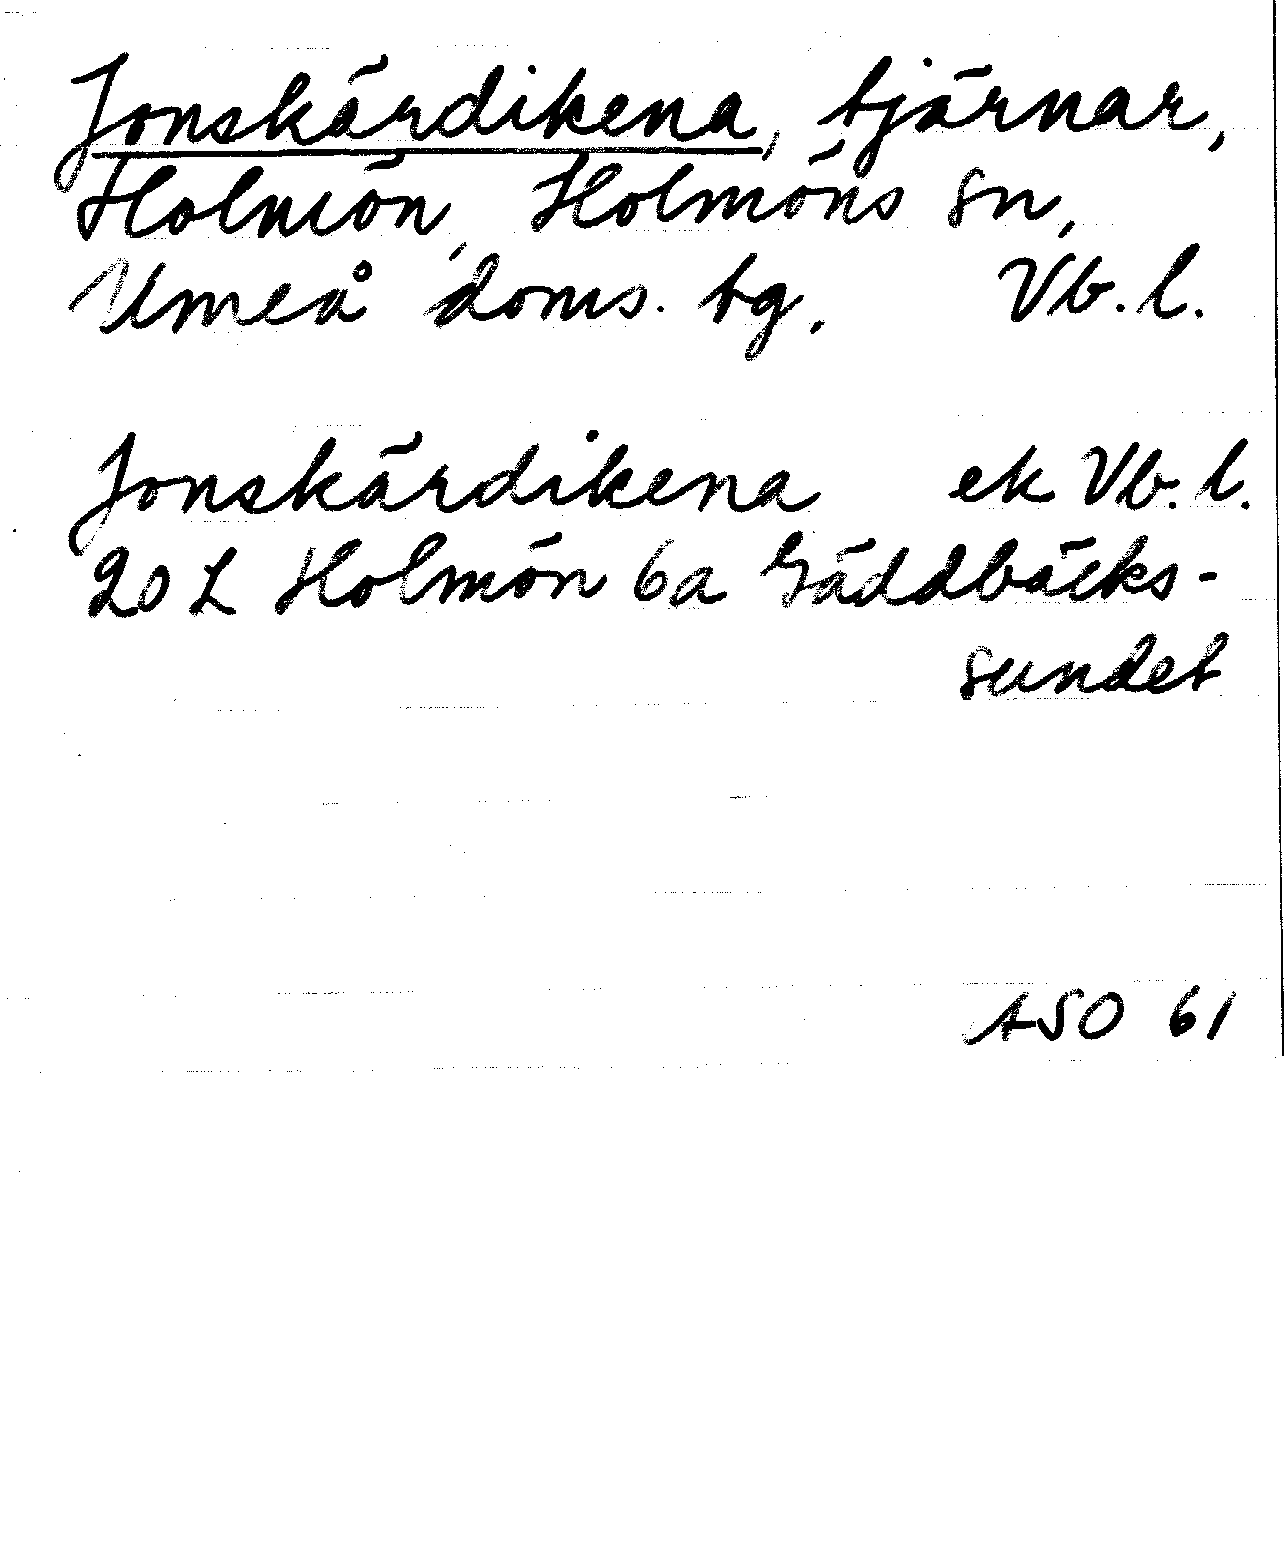 Jonskärdikena, tjärnar,
Holmön, Holmöns sn,
Umeå doms. tg. Vb. l.
Jonskärdikena ek Vb. l.
20 L Holmön 6a Gäddbäcks-
sundet
ASO 61